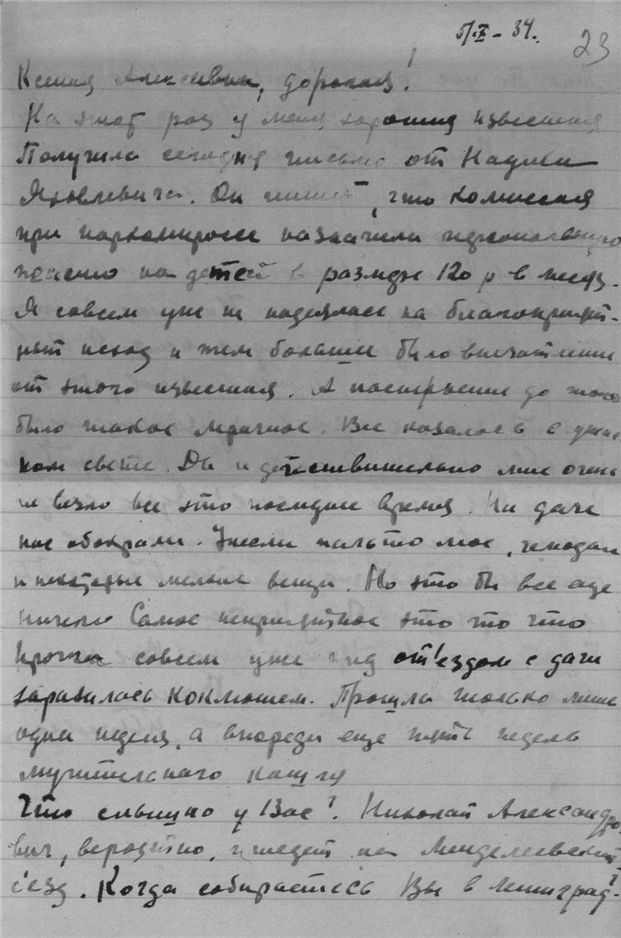 5/IX-34.
23
Ксения Алексеевна, дорогая!
На этот раз у меня хорошия известия
Получила сегодня письмо от Наума
Яковлевича. Он пишет, что комиссия
при наркомпросе назначила персональную
пенсию на детей в размере 120 р в месяц.
Я совсем уже не надеялась на благоприят-
ный исход и тем больше было впечатление
от этого известия. А настроение до этого
было такое мрачное. Все казалось в
ном свете. Да и действительно мне очень
не везло все это последнее время. На даче
нас обокрали. Унесли пальто мое, чемодан
и некоторые мелкие вещи. Но это бы все еще
ничего Самое неприятное это то что
совсем уже под от'ездом с дачи
заразилась коклюшем. Прошла только лишь
одна неделя, а впереди еще пять недель
мучительного кашля
Что слышно у Вас? Николай Александро-
вич, вероятно, приедет на Менделеевский
с'езд. Когда собираетесь Вы в Ленинград?